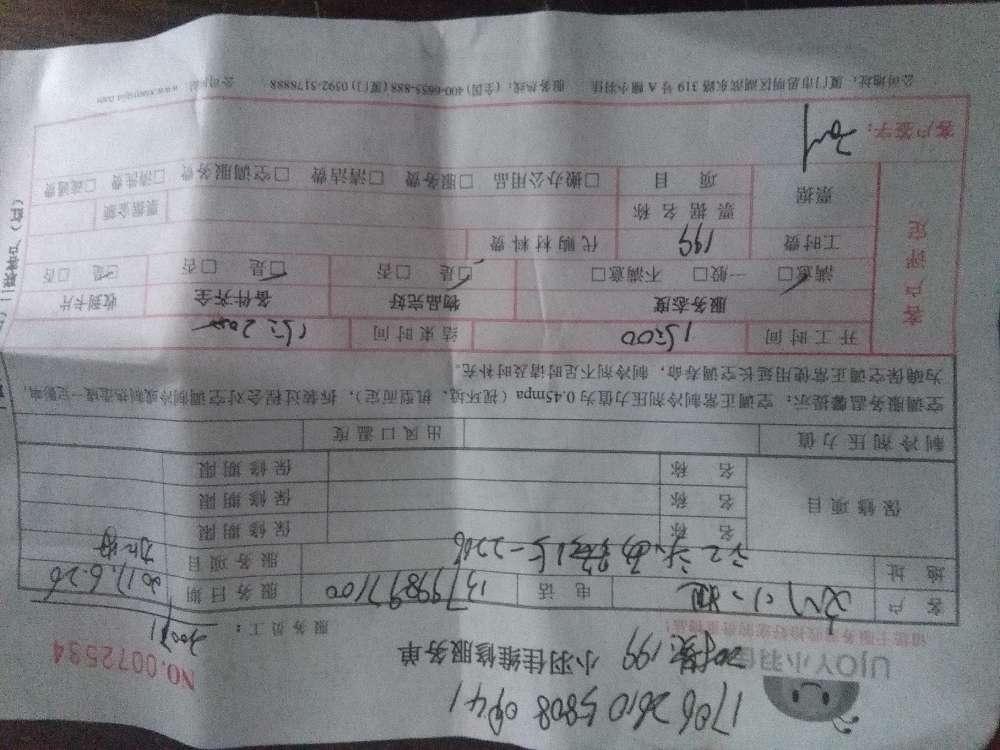 1706 2610 5808 0841
UJOY小羽佳
小羽佳维修服务单
199
NO.0072534
服务员工：
客户 电话 13799897100 服务日期 2017.6.26
地址 服务项目
保修项目 名称 保修期限
名称 保修期限
名称 保修期限
制冷剂压力值 出风口温度
空调服务温馨提示：空调正常制冷剂压力值为0.45mpa（视环境、机型而定），拆装过程会对空调制冷或制热造成一定影响，
为确保空调正常使用延长空调寿命，制冷剂不足时请及时补充。
客户评定
开工时间 15:00 结束时间
服务态度 物品完好 备件齐全 收到卡片
满意□ 一般□ 不满意□ □是 □否 □是 □否 □是 □否
工时费 199 代购材料费
票据 票据名称 票据金额
项目 □搬办公用品 □服务费 □清洁费 □空调服务费 □清洗费 □疏通费
客户签字：
公司地址：厦门市思明区湖滨东路319号A幢小羽佳 服务热线：(全国)400-6655-888 (厦门) 0592-5178888